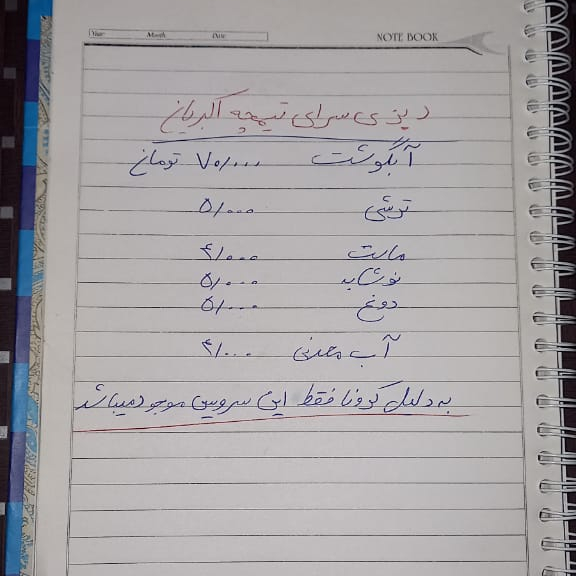 Year Month Date NOTE BOOK
دیزی سرای تیمچه اکبریان
آبگوشت ۷۰/۰۰۰ تومان
ترشی ۵/۰۰۰
ماست ۴/۰۰۰
نوشابه ۵/۰۰۰
دوغ ۵/۰۰۰
آب معدنی ۴/۰۰۰
به دلیل کرونا فقط این سرویس موجود میباشد